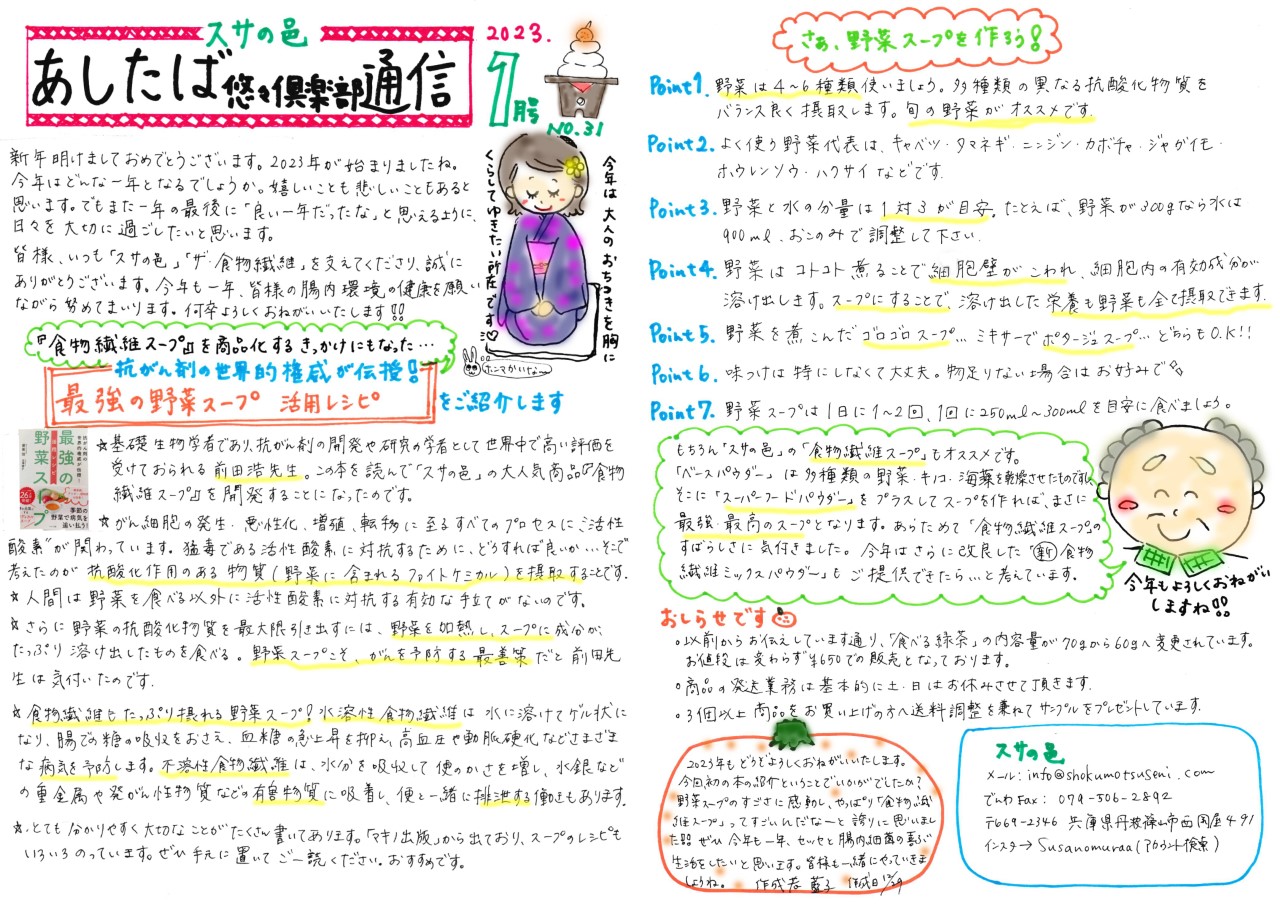 スサの邑
あしたば悠々倶楽部通信
2023.
1月号
NO.31
新年明けましておめでとうございます。2023年が始まりましたね。
今年はどんな一年となるでしょうか。嬉しいことも悲しいこともあると
思います。でもまた一年の最後に「良い一年だったな」と思えるように、
日々を大切に過ごしたいと思います。
皆様、いつも「スサの邑」「ザ・食物繊維」を支えてくださり、誠に
ありがとうございます。今年も一年、皆様の腸内環境の健康を願い
ながら努めてまいります。何卒よろしくおねがいいたします!!
今年は大人のおちつきを胸に
くらしてゆきたい所存です♡
ホンマかいな〜
『食物繊維スープ』を商品化するきっかけにもなった…
抗がん剤の世界的権威が伝授!
最強の野菜スープ 活用レシピ
をご紹介します
最強の
野菜スープ
☆基礎生物学者であり、抗がん剤の開発や研究の学者として世界中で高い評価を
受けておられる前田浩先生。この本を読んで「スサの邑」の大人気商品『食物
繊維スープ』を開発することになったのです。
☆がん細胞の発生・悪性化、増殖、転移に至るすべてのプロセスに、〝活性
酸素〟が関わっています。猛毒である活性酸素に対抗するために、どうすれば良いか…そこで
考えたのが 抗酸化作用のある物質(野菜に含まれるファイトケミカル)を摂取することです。
☆人間は野菜を食べる以外に活性酸素に対抗する有効な手立てがないのです。
☆さらに野菜の抗酸化物質を最大限引き出すには、野菜を加熱し、スープに成分が、
たっぷり溶け出したものを食べる。野菜スープこそ、がんを予防する最善策だと前田先
生は気付いたのです。
☆食物繊維もたっぷり摂れる野菜スープ!水溶性食物繊維は水に溶けてゲル状に
なり、腸での糖の吸収をおさえ、血糖の急上昇を抑え、高血圧や動脈硬化などさまざま
な病気を予防します。不溶性食物繊維は、水分を吸収して便のかさを増し、水銀など
の重金属や発がん性物質などの有害物質に吸着し、便と一緒に排泄する働きもあります。
☆とても分かりやすく大切なことがたくさん書いてあります。「マキノ出版」から出ており、スープのレシピも
いろいろのっています。ぜひ手元に置いてご一読ください。おすすめです。
さぁ、野菜スープを作ろう!
Point1. 野菜は4〜6種類使いましょう。多種類の異なる抗酸化物質を
バランス良く摂取します。旬の野菜がオススメです。
Point2. よく使う野菜代表は、キャベツ・タマネギ・ニンジン・カボチャ・ジャガイモ・
ホウレンソウ・ハクサイなどです。
Point3. 野菜と水の分量は1対3が目安。たとえば、野菜が300gなら水は
900ml、おこのみで調整して下さい。
Point4. 野菜はコトコト煮ることで細胞壁がこわれ、細胞内の有効成分が
溶け出します。スープにすることで、溶け出した栄養も野菜も全て摂取できます。
Point5. 野菜を煮こんだゴロゴロスープ…ミキサーでポタージュスープ…どちらもO.K!!
Point6. 味つけは特にしなくて大丈夫。物足りない場合はお好みで
Point7. 野菜スープは1日に1〜2回、1回に250ml〜300mlを目安に食べましょう。
もちろん「スサの邑」の「食物繊維スープ」もオススメです。
「ベースパウダー」は多種類の野菜・キノコ・海藻を乾燥させたものですし、
そこに「スーパーフードパウダー」をプラスしてスープを作れば、まさに
最強・最高のスープとなります。あらためて「食物繊維スープ」の
すばらしさに気付きました。今年はさらに改良した「新食物
繊維ミックスパウダー」もご提供できたら…と考えています。
今年もよろしくおねがい
しますね!!
おしらせです
○以前からお伝えしています通り、「食べる緑茶」の内容量が70gから60gへ変更されています。
お値段は変わらず¥650での販売となっております。
○商品の発送業務は基本的に土・日はお休みさせて頂きます。
○3個以上商品をお買い上げの方へ送料調整を兼ねてサンプルをプレゼントしています。
2023年もどうぞよろしくおねがいいたします。
今回初の本の紹介ということでいかがでしたか?
野菜スープのすごさに感動し、やっぱり「食物繊
維スープ」ってすごいんだな〜と誇りに思いまし
た。ぜひ今年も一年、セッセと腸内細菌の喜ぶ
生活をしたいと思います。皆様も一緒にやっていきま
しょうね。 作成者 藍子 作成日12/29
スサの邑
メール:info@shokumotsuseni.com
でんわFax: 079-506-2892
〒669-2346 兵庫県丹波篠山市西岡屋491
インスタ→Susanomuraa(アカウント検索)